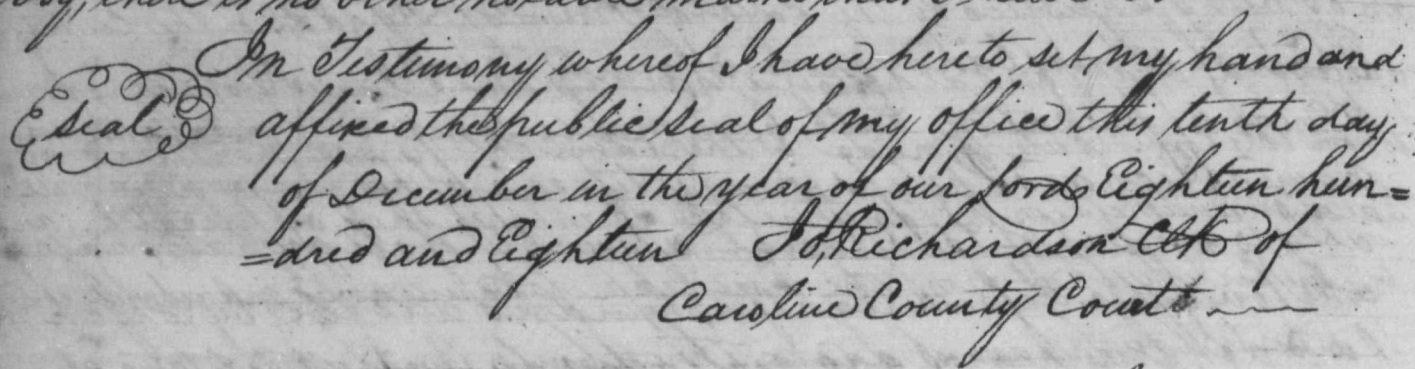 there is no other
In Testimony whereof I have hereto set my hand and
seal
affixed the public seal of my office this tenth day
of December in the year of our Lord Eighteen hun=
=dred and Eighteen Jo. Richardson Clk of
Caroline County Court